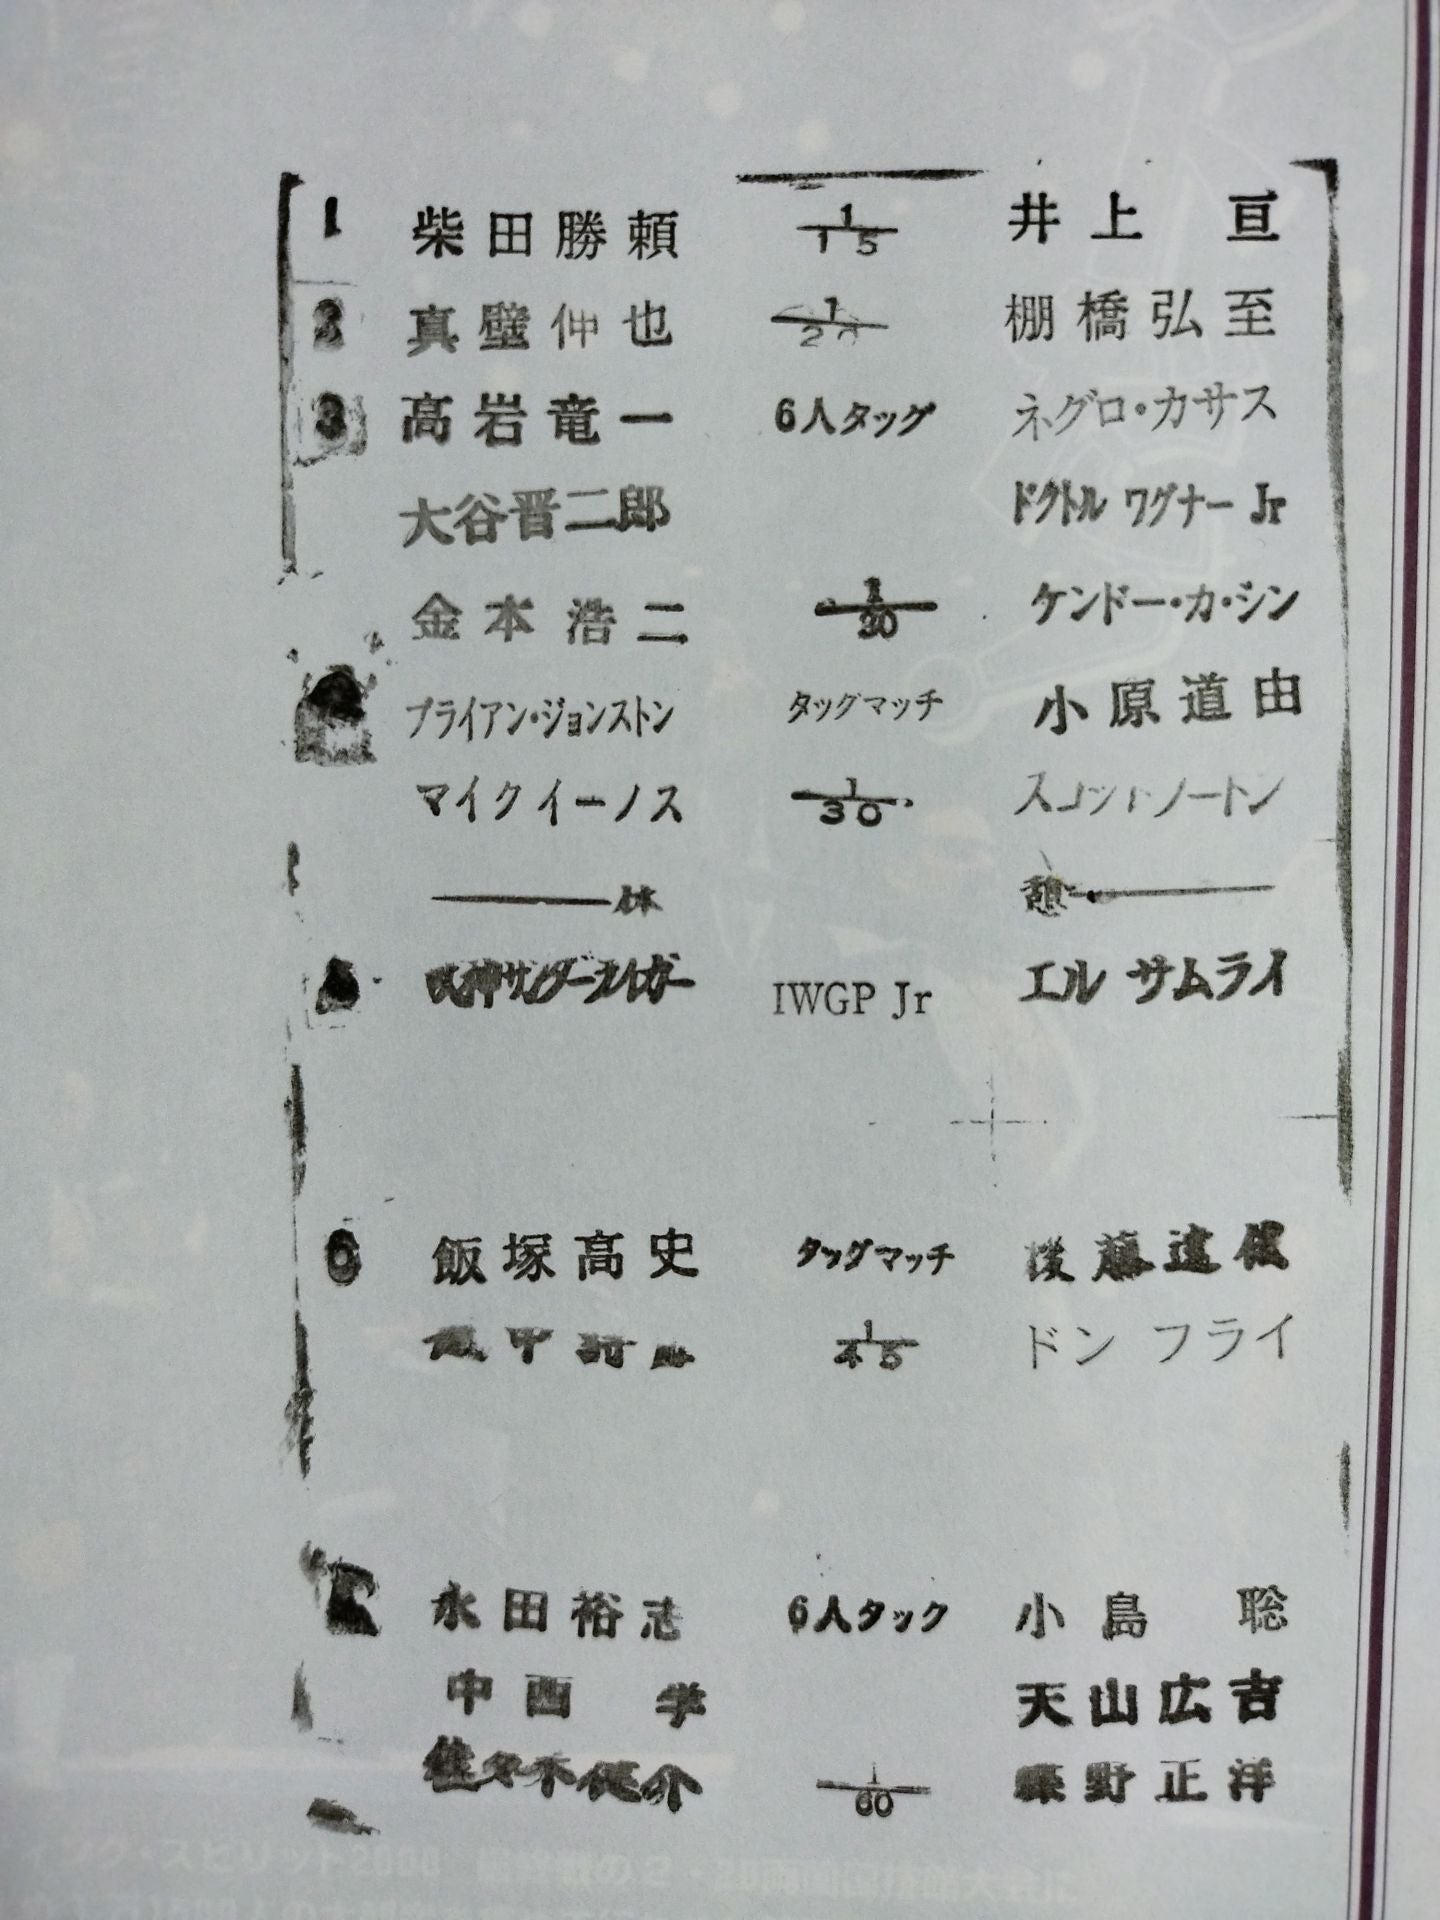 1 柴田勝頼 1/15 井上 亘
2 真壁伸也 1/20 棚橋弘至
3 高岩竜一 6人タッグ ネグロ・カサス
大谷晋二郎 ドクトル ワグナー Jr
金本浩二 1/30 ケンドー・カ・シン
ブライアン・ジョンストン タッグマッチ 小原道由
マイクイーノス 1/30 スコットノートン
休 憩
獣神サンダーライガー IWGP Jr エル サムライ
6 飯塚高史 タッグマッチ 後藤達俊
1/45 ドン フライ
永田裕志 6人タック 小島 聡
中西 学 天山広吉
佐々木健介 1/60 蝶野正洋